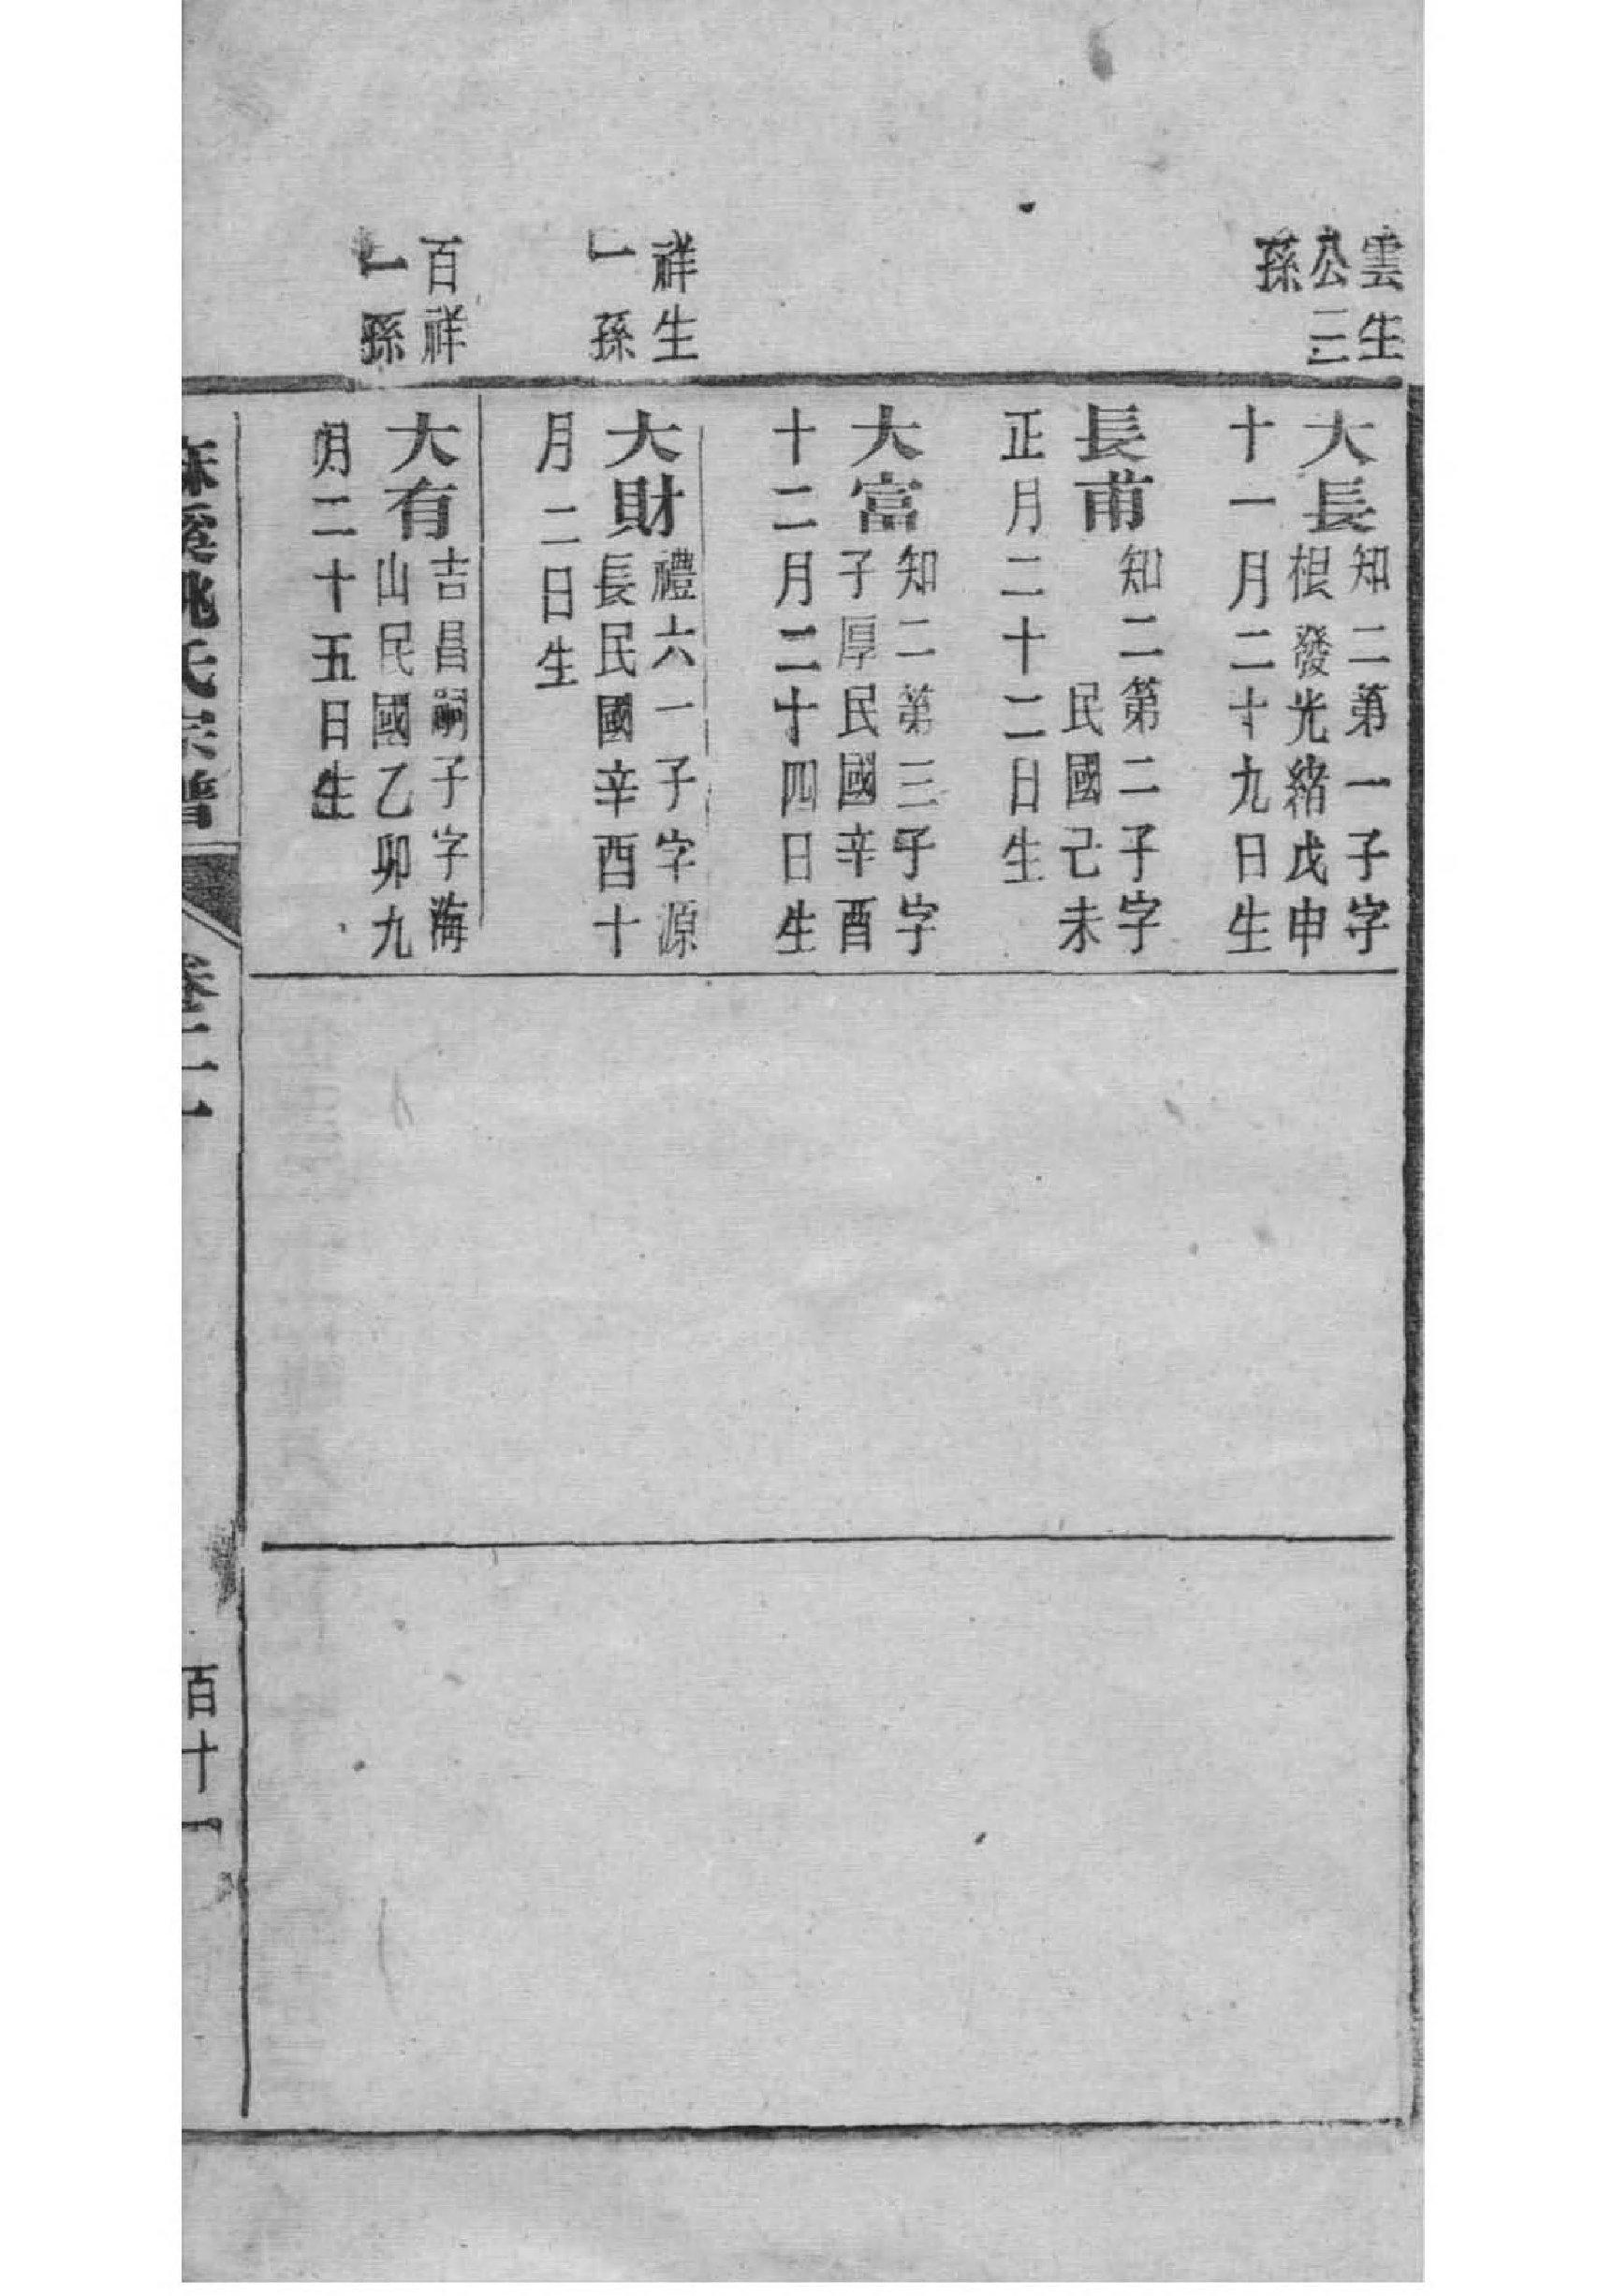 雲生
公三
孫
大長知二第一子字
根發光緒戊申
十一月二十九日生
長甫知二第二子字
民國己未
正月二十二日生
大富知二第三子字
子厚民國辛酉
十二月二十四日生
祥生
一孫
大財禮六一子字源
長民國辛酉十
月二日生
百祥
一孫
大有吉昌嗣子字海
山民國乙卯九
月二十五日生
麻溪姚氏宗譜
百十一